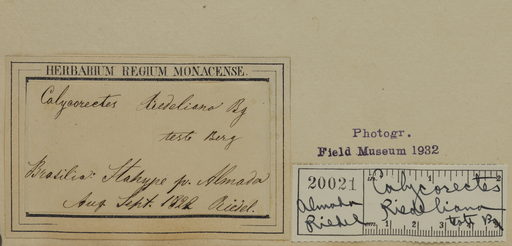 HERBARIUM REGIUM MONACENSE.
Calycorectes Riedeliana Bg
teste Berg
Brasilia: Itahype pr. Almada
Aug Sept. 1822 Riedel.
Photogr.
Field Museum 1932
20021
Calycorectes
Riedeliana
teste Bg
Almada
Riedel